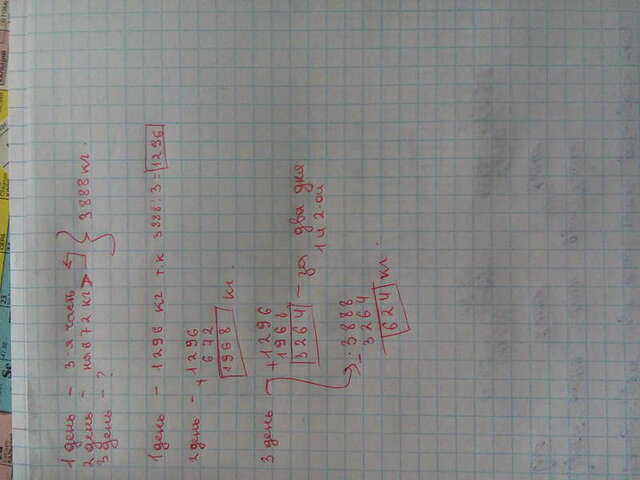 1 день – 3-я часть
2 день – на 672 кг > } 3888 кг.
3 день – ?
1 день – 1296 кг т.к 3888:3=1296
2 день – +1296
672
1968 кг.
3 день – +1296
1968
3264 – за два дня
1 и 2-ой
-3888
3264
624 кг.